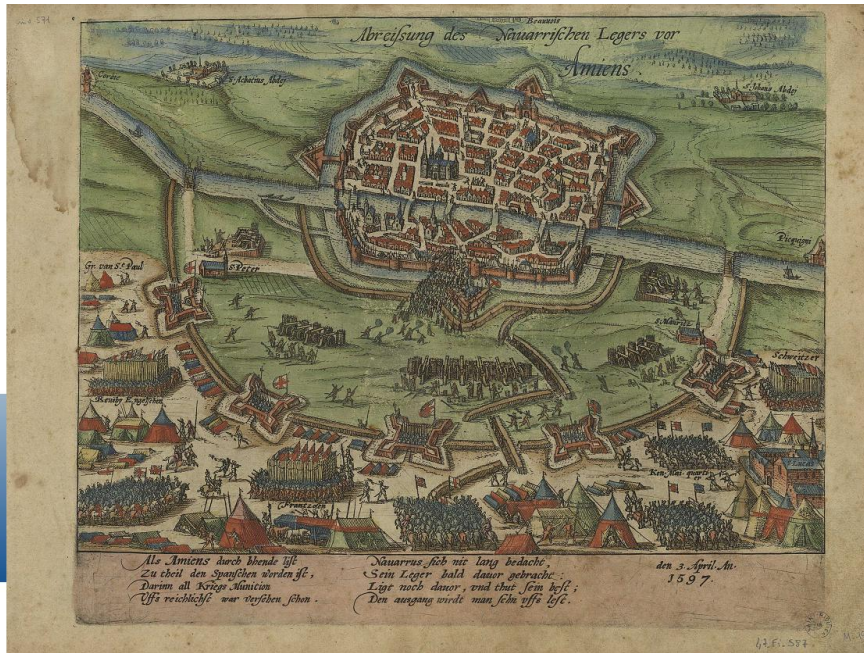 Beauuais
Abreißung des Nauarrischen Legers vor
Amiens
Corbie
S. Acheuns Abdej
S. Johans Abdej
Picquini
Gr. van S. Paul
S. Peter
S. Mauritz
Schweitzer
Engelschen
Frantzosen
Ken. Mai. quartir
S. Lucas
Als Amiens durch bhende list
Zu theil den Spanschen worden ist,
Darinn all Kriegs Municion
Uffs reichlichst war versehen schon.
Nauarrus sich nit lang bedacht,
Sein Leger bald dauor gebracht:
Ligt noch dauor, vnd thut sein best;
Den ausgang wirdt man sehn uffs lest.
den 3. April. An.
1597.